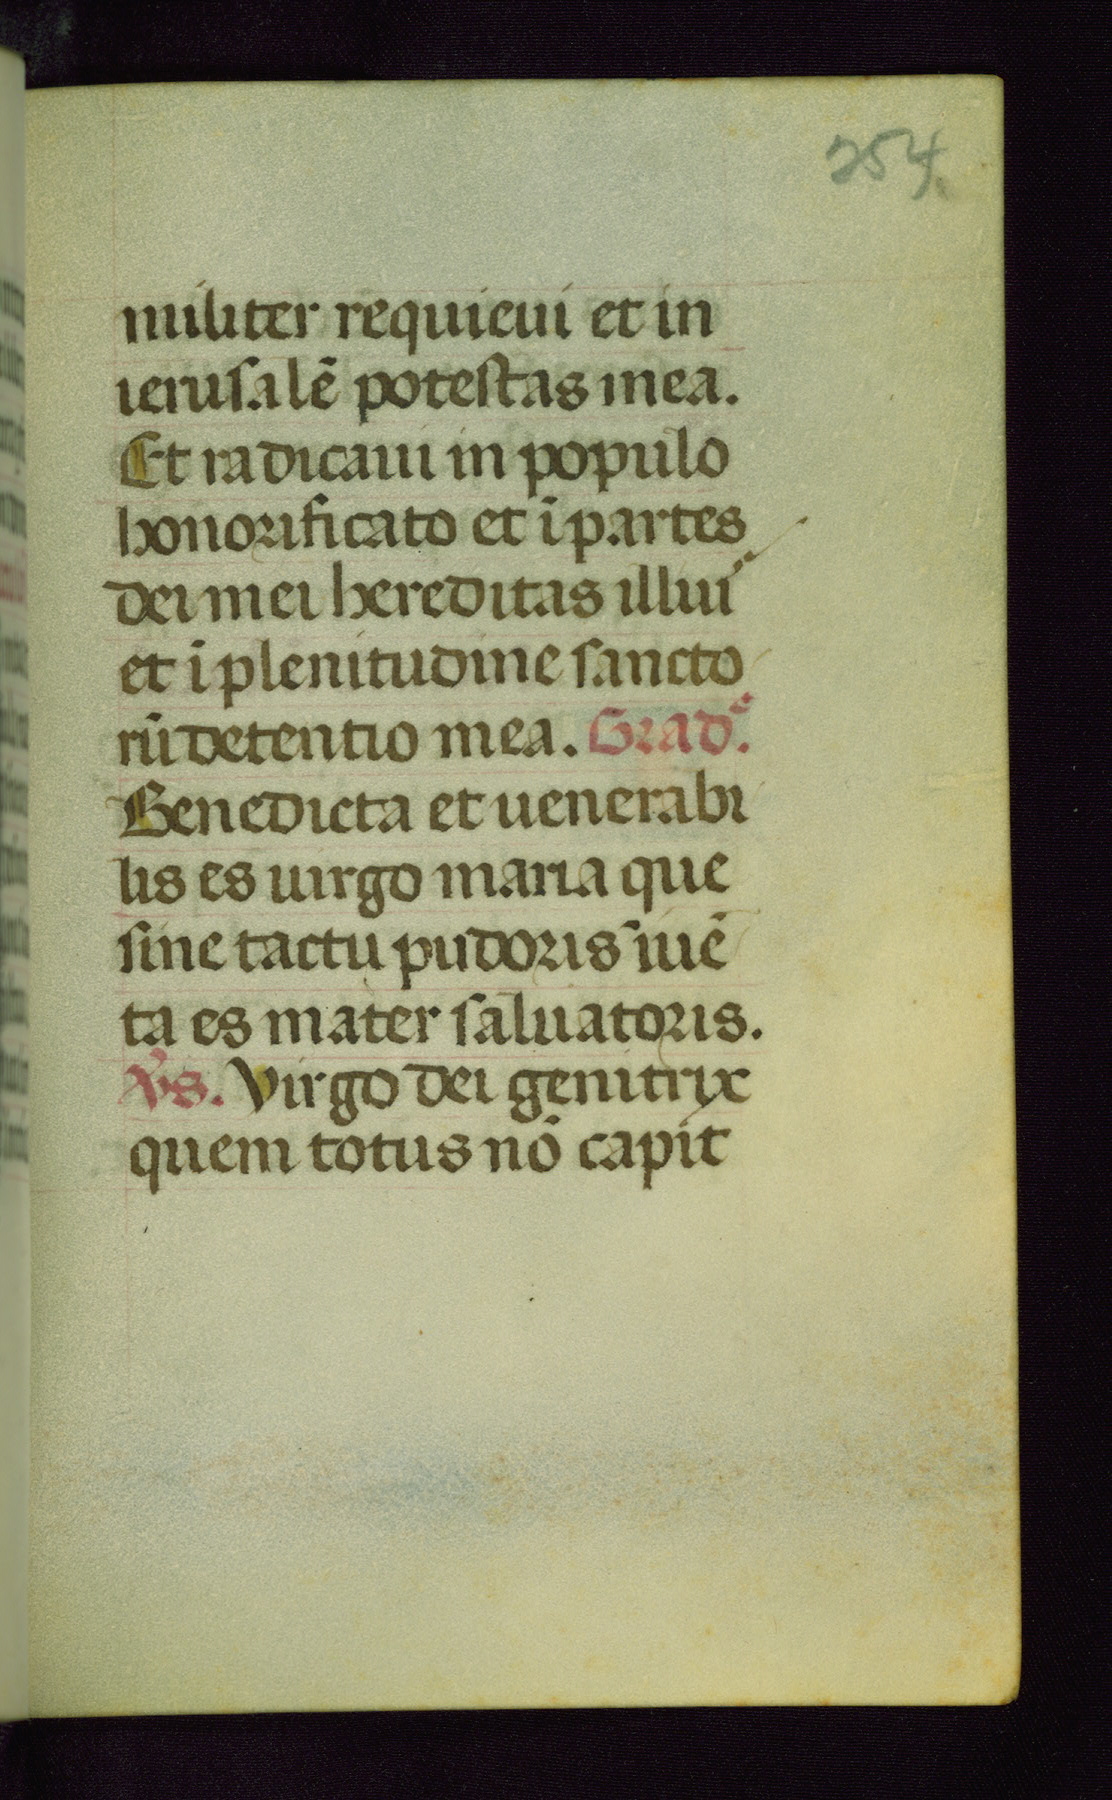 254.
militer requieui et in
ierusalē potestas mea.
Et radicaui in populo
honorificato et ī partes
dei mei hereditas illiuˢ
et ī plenitudine sancto
rū detentio mea. Gradᵉ.
Benedicta et uenerabi
lis es uirgo maria que
sine tactu pudoris īuē
ta es mater saluatoris.
Vs. Virgo dei genitrix
quem totus nō capit